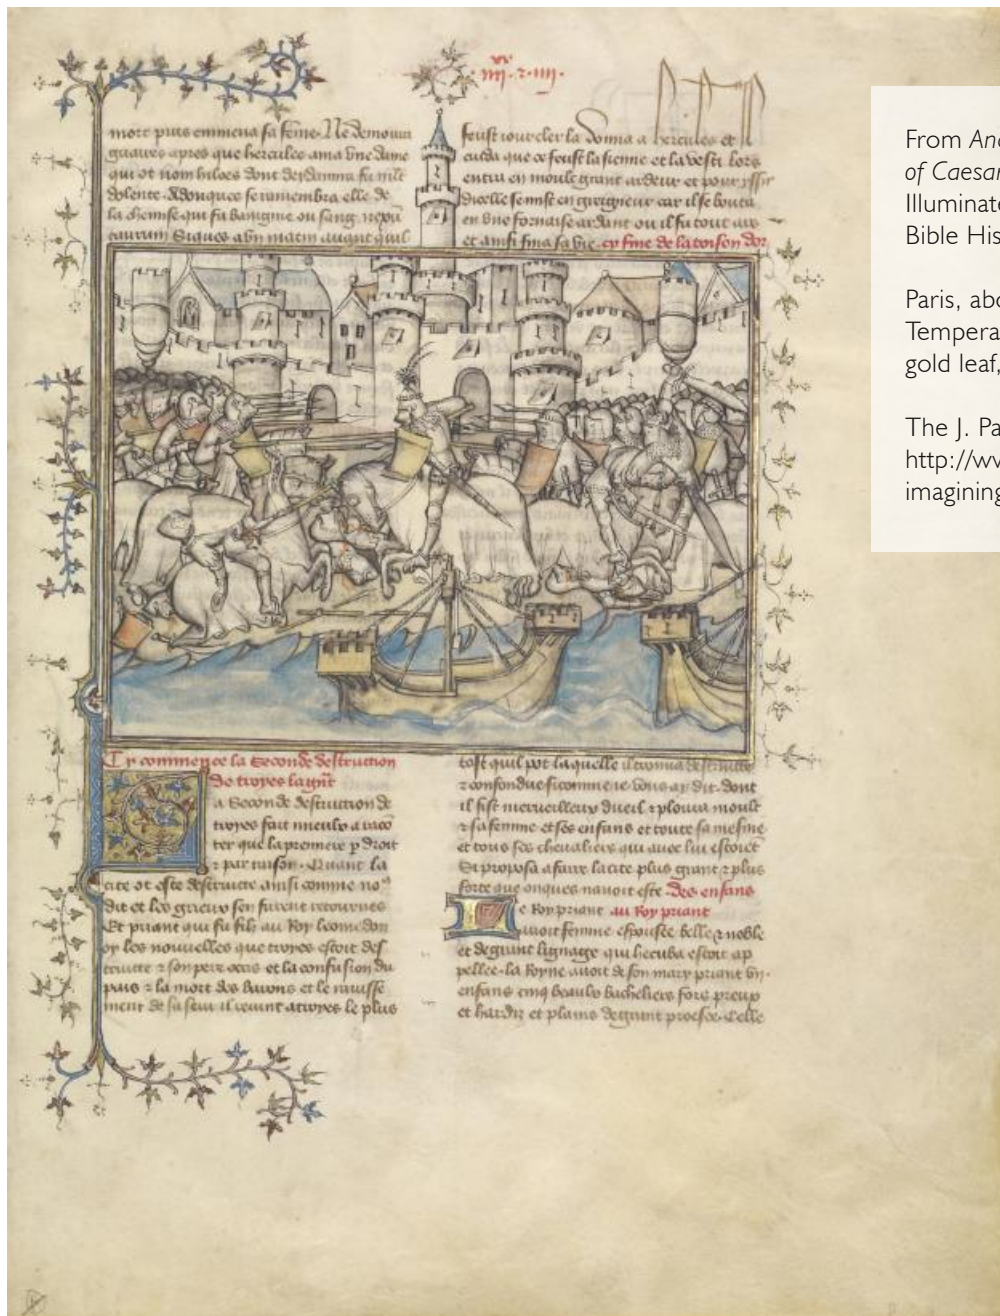 iiii . xx . iiii .
mort puis emmena sa feme. Ne demoura
guaires apres que hercules ama vne dame
qui ot nom hiloes dont deidamia fu mlt
dolente. Adonques se ramembra elle de
la chemise qui fu baingnie ou sang
taurum Si que a vn matin auant quil
feust iour cler la donna a hercules et il
cuida que ce feust la sienne et la vesti lors
entra en moult grant ardeur et pour yssir
dicelle se mist en greigneur car il se bouta
en vne fornaise ardant ou il fu tout ars
et ainsi fina sa vie. cy fine de la toison dor
Cy commence la seconde destruction
de troyes la grãt
la seconde destruction de
troyes fait mieulx a racõ
ter que la premiere p droit
et par raison. Quant la
cite ot este destruicte ainsi comme no9
dit et les grieux sen furent retournes
Et priant qui fu filz au Roy leomedon
oy les nouuelles que troyes estoit des
truicte et son pere occis et la confusion du
pais et la mort des barons et le rauisse
ment de sa seur il reuint a troyes le plus
tost quil pot laquelle il trouua destruicte
et confondue si comme ie vous ay dit. dont
il fist merueilleux dueil et ploura moult
et sa femme et ses enfans et toute sa mesnie
et tous ses cheualiers qui auec lui estoiẽt
Si proposa a faire la cite plus grant et plus
forte que onques nauoit este. Des enfans
Le Roy priant au Roy priant
auoit femme espousee belle et noble
et de grant lignage qui hecuba estoit ap
pellee. la Royne auoit de son mary priant vii.
enfans cinq beaulx bacheliers fors preux
et hardiz et plains de grant proesce. Celle
From Anc
of Caesar
Illuminate
Bible His
Paris, abo
Tempera
gold leaf,
The J. Pa
http://wv
imagining